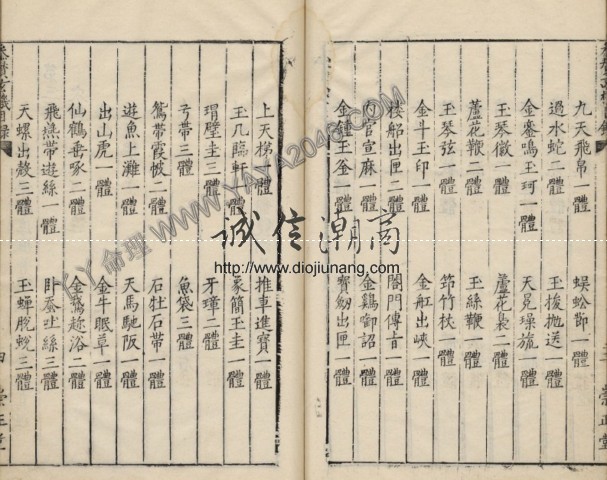 九天飛帛一體 蜈蚣節一體
過水蛇二體 玉梭拋送一體
金鑾鳴玉珂一體 天冕璪旒一體
玉琴徽一體 蘆花裊二體
蘆花鞭一體 玉絲鞭一體
玉琴弦一體 筇竹杖一體
金斗玉印一體 金舡出峽一體
楼船出匣二體 閤門傳言一體
内官宣麻一體 金鷄啣詔一體
金鍾玉釜一體 寶劒出匣一體
上天梯一體 推車進寶一體
玉几臨軒一體 篆簡玉圭一體
瑁璧圭三體 牙璋二體
弓帶三體 魚袋三體
鴛帶霞帔二體 石牡石帶一體
遊魚上灘一體 天馬馳阪一體
出山虎一體 金牛眠草一體
仙鶴垂啄二體 金鵞趂浴一體
飛燕帶遊絲一體 卧蚕吐絲三體
天螺出殼三體 玉蟬脫蛻三體
四 崇正堂
崇正堂
诚信潮高
http://www.diojiunang.com
YY命理 WWW.YAYA2046.COM